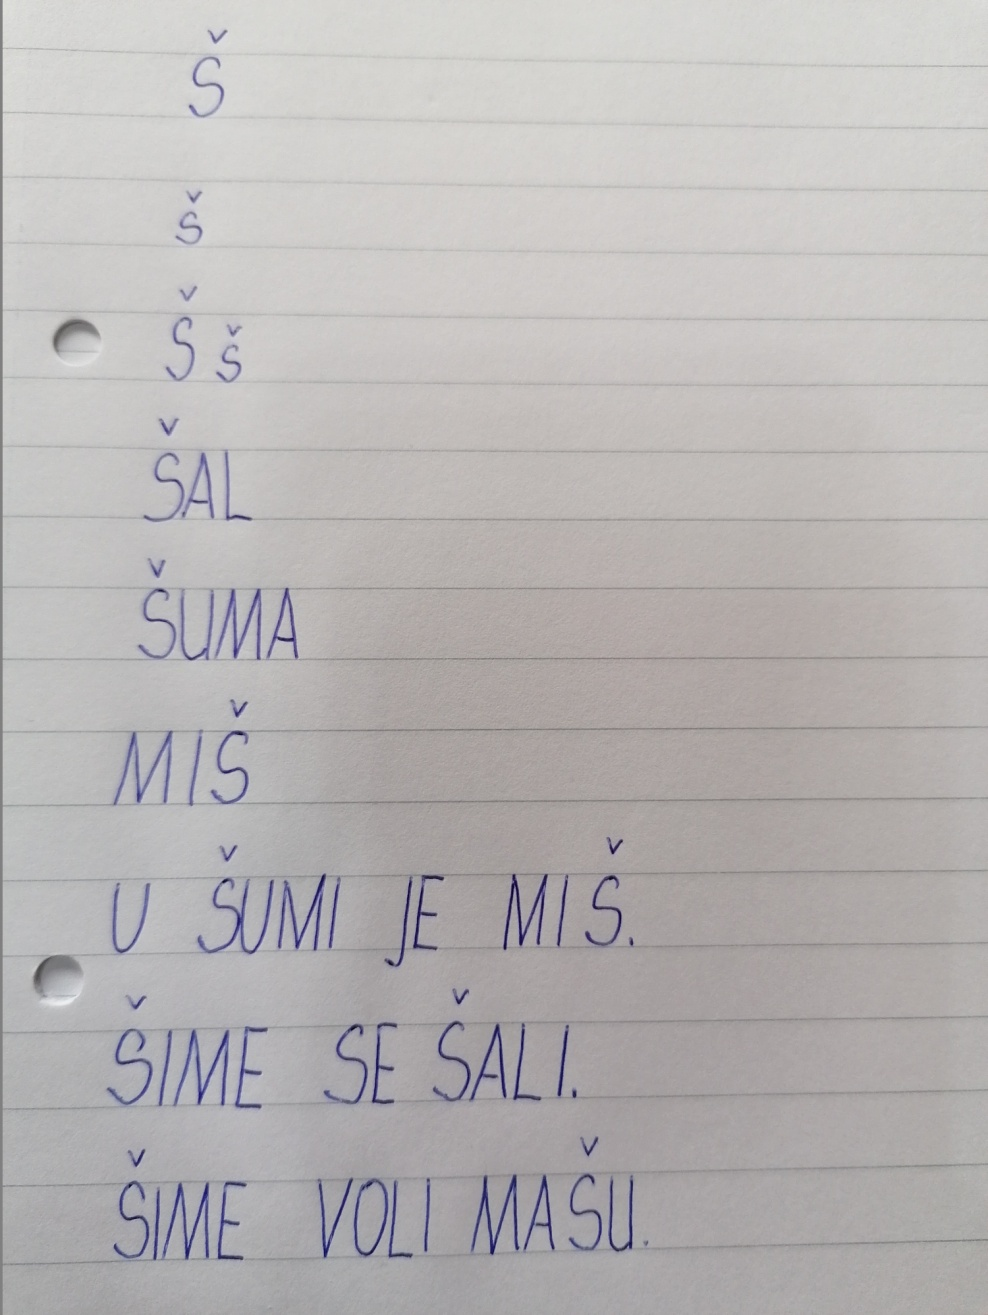 Š
š
Š š
ŠAL
ŠUMA
MIŠ
U ŠUMI JE MIŠ.
ŠIME SE ŠALI.
ŠIME VOLI MAŠU.